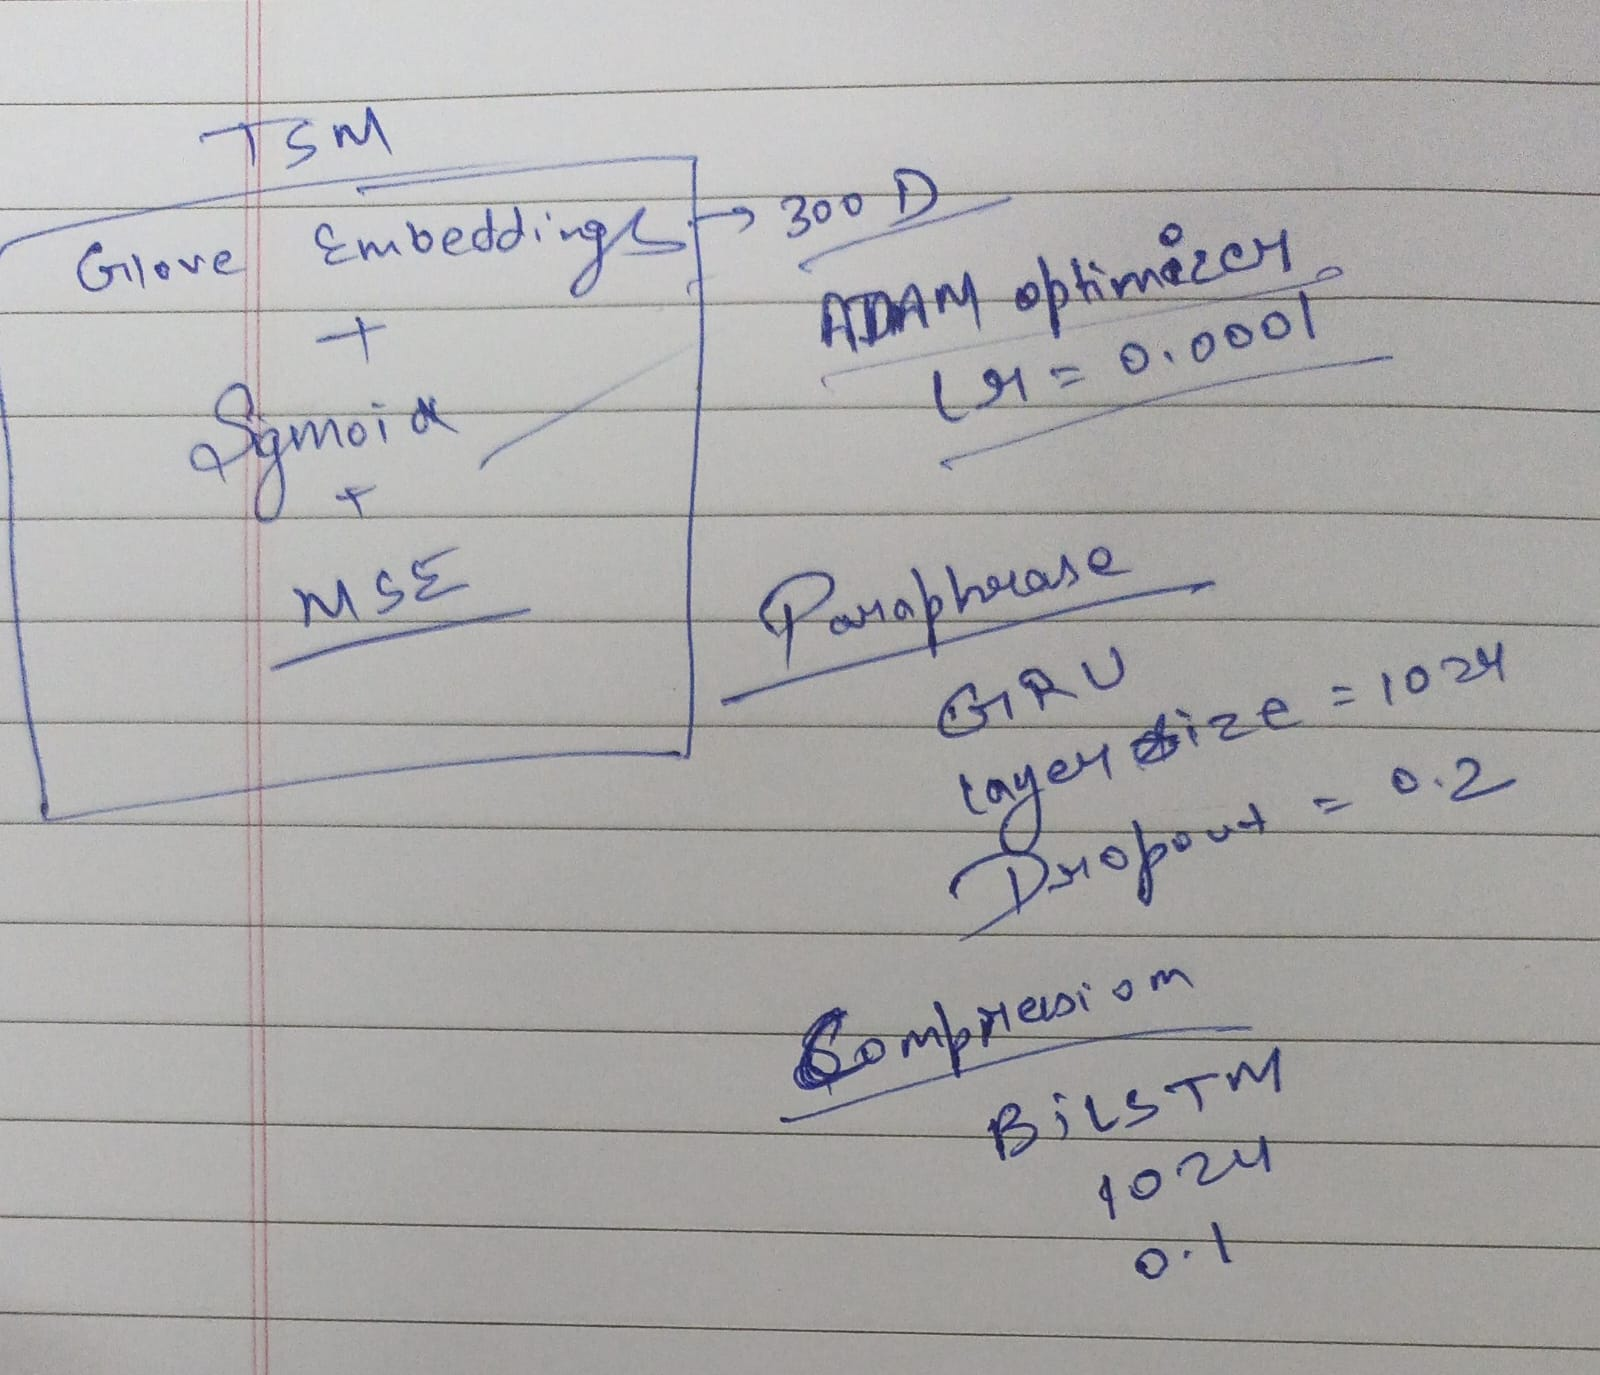 TSM
Glove Embeddings → 300 D
+
Sigmoid
+
MSE
ADAM optimizer
lr = 0.0001
Paraphrase
GRU
layer size = 1024
Dropout = 0.2
Compression
BiLSTM
1024
0.1